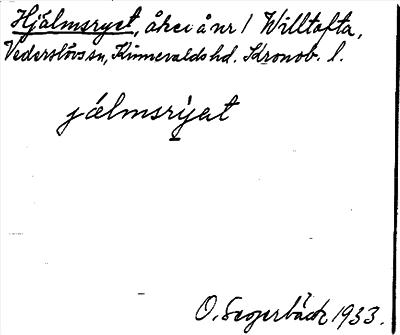 Hjälmsryet, åker å nr 1 Willtofta,
Vederslövs sn, Kinnevalds hd. Kronob. l.
jælmsrijat
O. Segerbäck 1933.